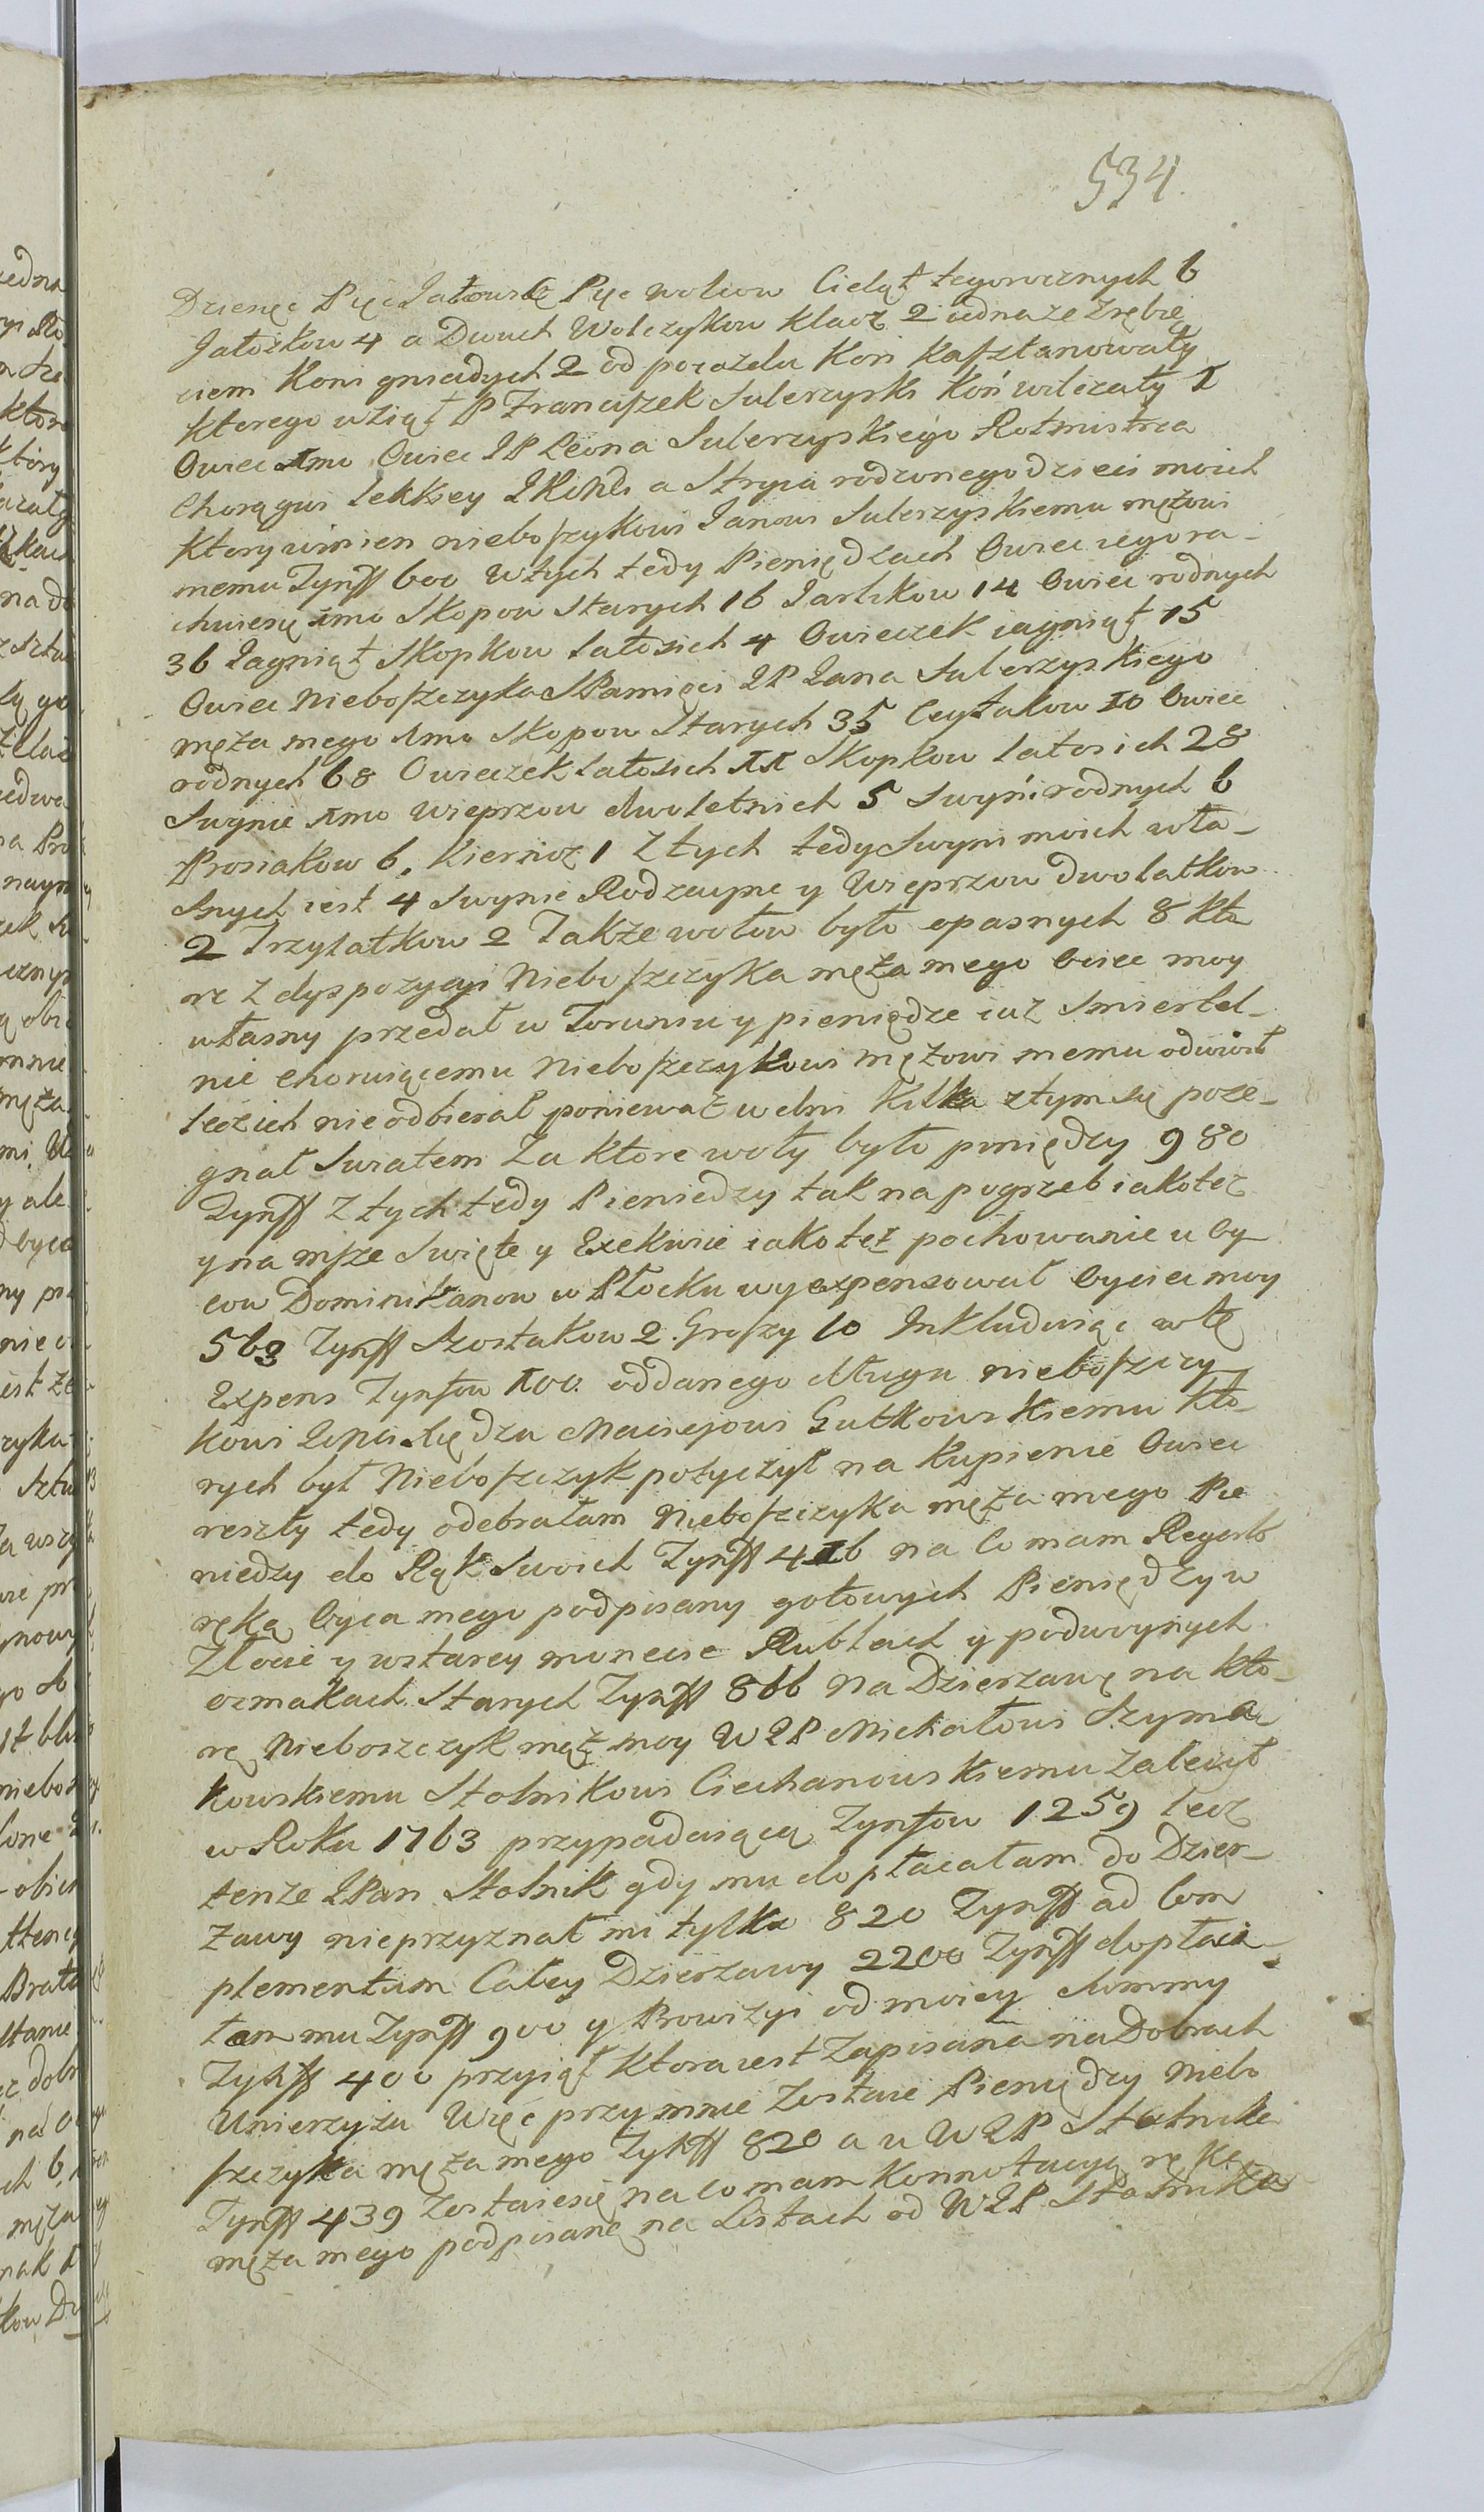 534.
Dziesięć Pięć Jałowic Pięc wolcow Cieląt tegorocznych 6
Jałoszkow 4 a Dwuch Wolczykow klacz 2 iedna ze Zrebię
ciem Koni gniadych 2 od poiazdu Koń Kasztanowaty
ktorego wziął P Franciszek Sulerzyski Koń wilczaty 1
Owiec Imo Owiec JP Leona Sulerzyskiego Rotmistrza
Chorągwi lekkiey a Stryia rodzonego dzieci moich
ktory winien nieboszykowi Janowi Sulerzyskiemu mężowi
memu Tynff 600 wtych tedy Pieniędzach Owiec iego ra-
chuie się imo Skopow Starych 16 Jarlikow 14 Owiec rodnych
36 Jagniąt Skopkow latosich 4 Owieczek iagniąt 15
Owiec Nieboszczyka S Pamięci JP Jana Sulerzyskiego
męża mego Imo Skopow Starych 35 Ceytakow 10 Owiec
rodnych 68 Owieczek latosich 11 Skopkow latosich 28
Swynie Imo Wieprzow dwoletnich 5 Swyń rodnych 6
Prosiakow 6. Kiernoz 1 Z tych tedy Swyni moich wła-
snych iest 4 Swynie Rodzayne y Wieprzow dwolatkow
2 Trzylatkow 2 Także wołow było opasnych 8 kto
re Z dyspozycyi Nieboszczyka męża mego Ociec moy
własny przedał w Toruniu y pieniądze iuz Smiertel-
nie choruiącemu Nieboszczykowi mężowi memu odwiozł
lecz ich nie odbierał poniewaz w dni Kilka z tym się poże-
gnał Swiatem Za ktore woły było pieniędzy 980
Tynff Z tych tedy Pieniedzy tak na pogrzeb iako tez
y na msze Swięte y Exekwie iako też pochowanie u Oy
cow Dominikanow w Płocku wyexpensował Oyciec moy
563 Tynff Szostakow 2. Groszy 10 Inkluduiąc w tę
Expens Tynfow 100. oddanego długu nieboszczy
kowi Xiędzu Maciejowi Gutkowskiemu kto-
rych był Nieboszczyk pożyczył na Kupienie Owiec
reszty tedy odebrałam Nieboszczyka męża mego Pie
niedzy do Rąk Swoich Tynff 416 na Co mam Regestr
ręką Oyca mego podpisany gotowych Pieniędzy w
Złocie y wstarey monecie Rublach y podwoynych
czmakach Starych Tynff 866 Na Dzierżawę na kto-
rę Nieboszczyk mąż moy WJP Michałowi Szyma
kowskiemu Stolnikowi Ciechanowskiemu Zaliczył
w Roku 1763 przypadaiącą Tynfow 1259 lecz
tenze JPan Stolnik gdy mu dopłacałam do Dzier-
żawy nieprzyznał mi tylko 820 Tynff ad Com
plementum Całey Dzierżawy 2200 Tynff dopłaci-
łam mu Tynff 900 y Prowizyi od moiey Summy
Tynff 400 przyiął ktora iest Zapisana na Dobrach
Unierzyżu Więc przy mnie Zostaie Pieniędzy niebo
szczyka męża mego Tynff 820 a u WJP Stolnika
Tynff 439 Zostaie się na Co mam Konnotacyą ręką
męża mego podpisanę na Listach od WJP Stolnika